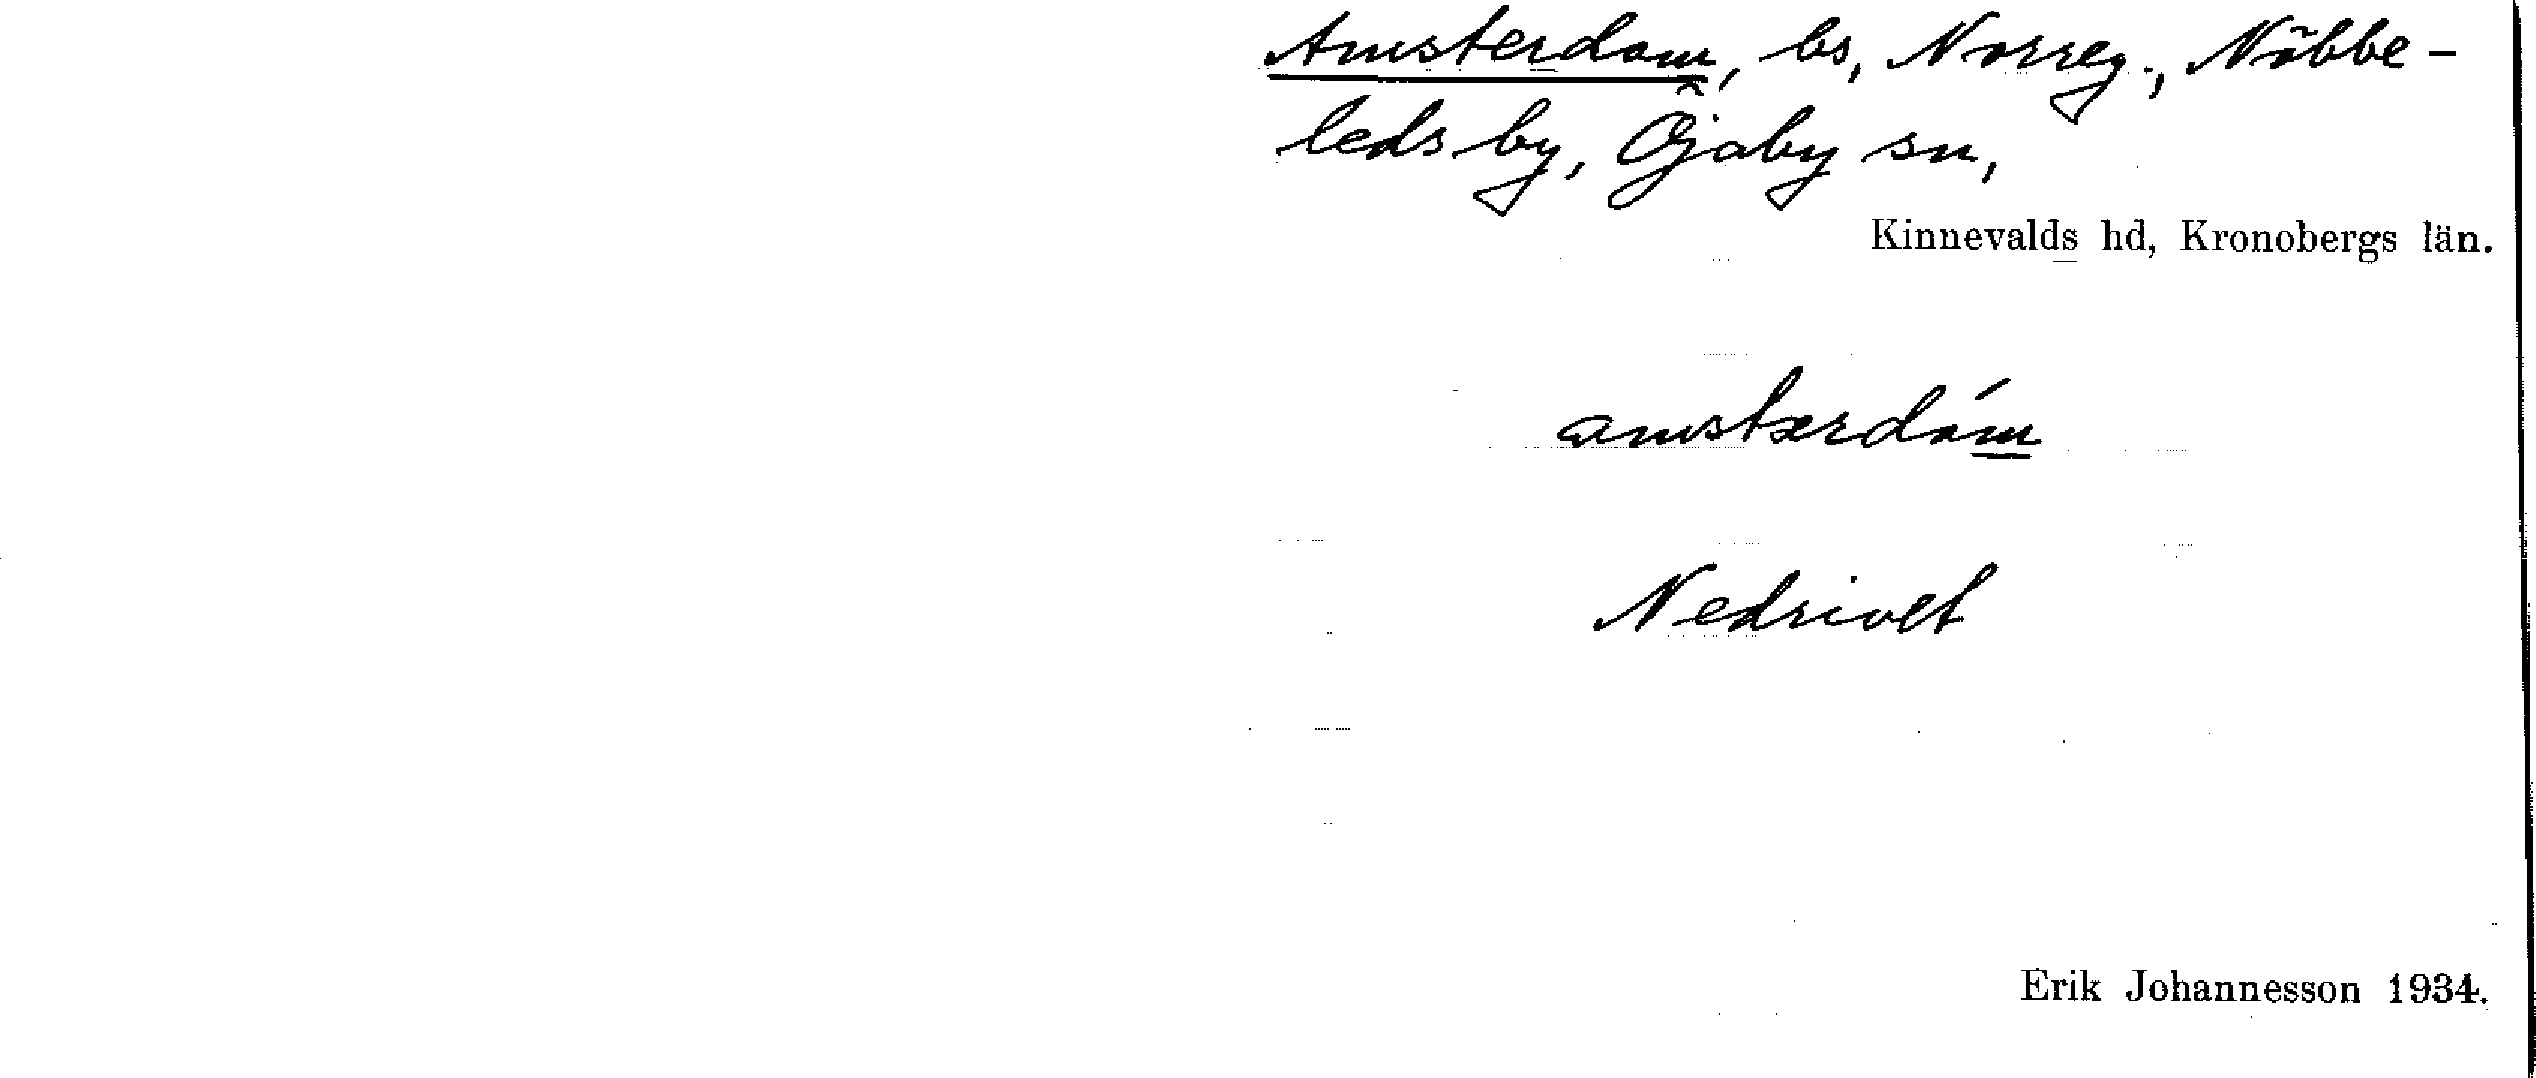 Amsterdam, bs, Norreg., Nöbbe-
leds by, Öjaby sn,
Kinnevalds hd, Kronobergs län.
amstærdám
Nedrivet
Erik Johannesson 1934.